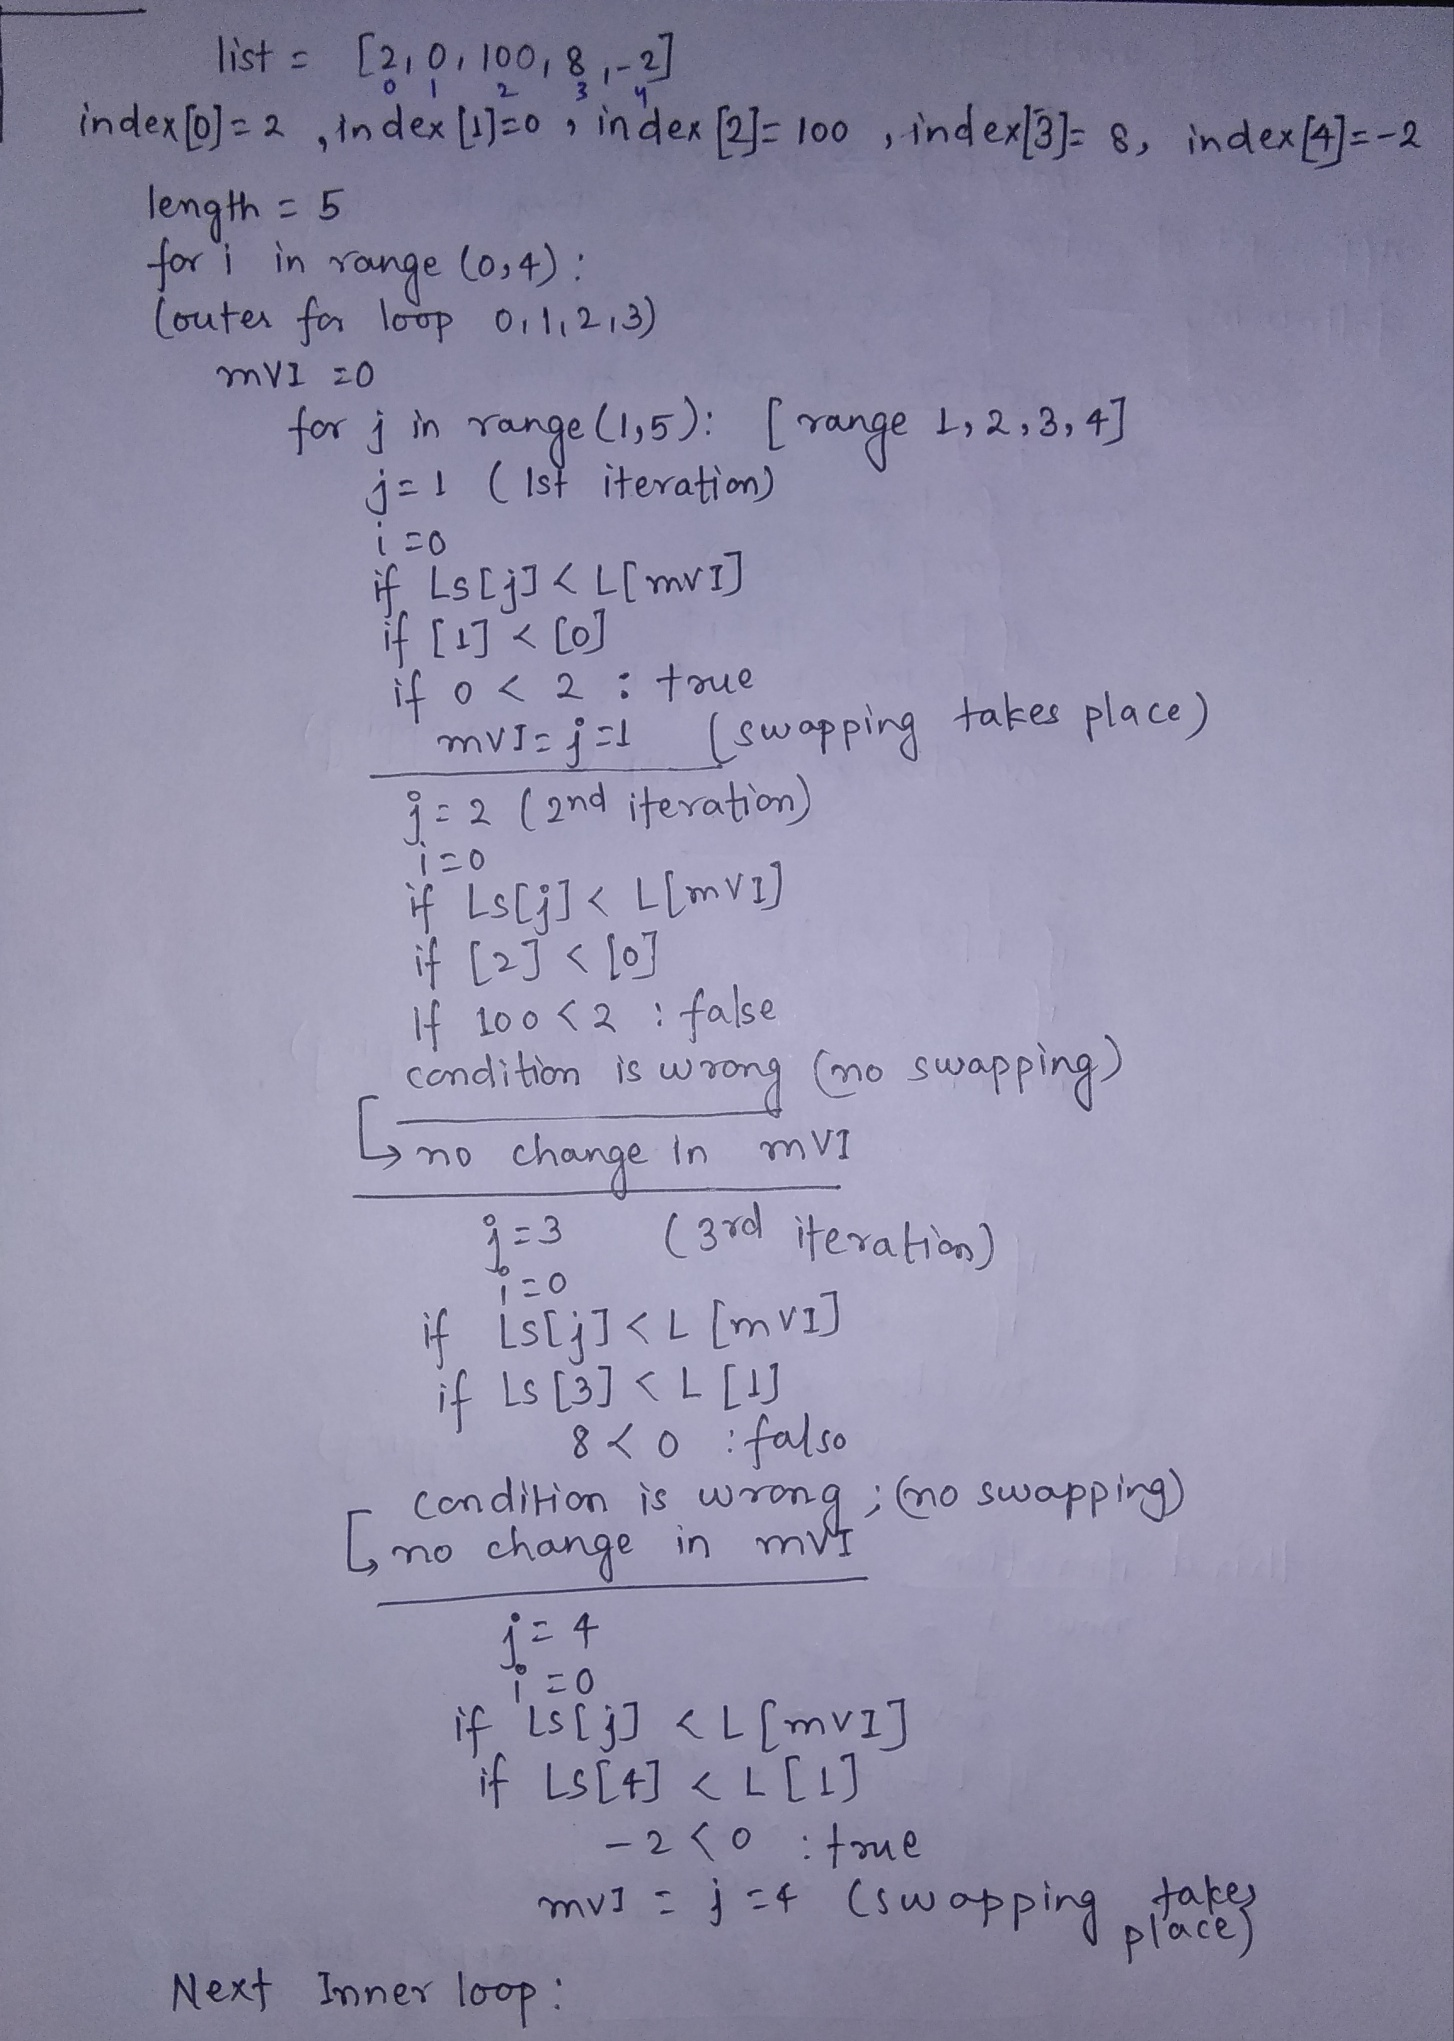 list = [2, 0, 100, 8, -2]
0 1 2 3 4
index[0] = 2 , index [1]=0 , index [2]= 100 , index[3]= 8, index[4]=-2
length = 5
for i in range (0,4) :
(outer for loop 0,1,2,3)
mVI =0
for j in range (1,5): [range 1, 2, 3, 4]
j=1 (1st iteration)
i=0
if Ls[j] < L[mvI]
if [1] < [0]
if 0 < 2 : true
mvI= j=1 (swapping takes place)
j=2 (2nd iteration)
i=0
if Ls[j] < L[mVI]
if [2] < [0]
If 100<2 : false
condition is wrong (no swapping)
↳ no change in mVI
j=3 (3rd iteration)
i=0
if Ls[j] < L [mvI]
if Ls [3] < L [1]
8<0 : falso
condition is wrong ; (no swapping)
↳ no change in mvI
j=4
i=0
if Ls[j] < L [mvI]
if Ls[4] < L [1]
-2<0 : true
mvI = j =4 (swapping takes
place)
Next Inner loop :